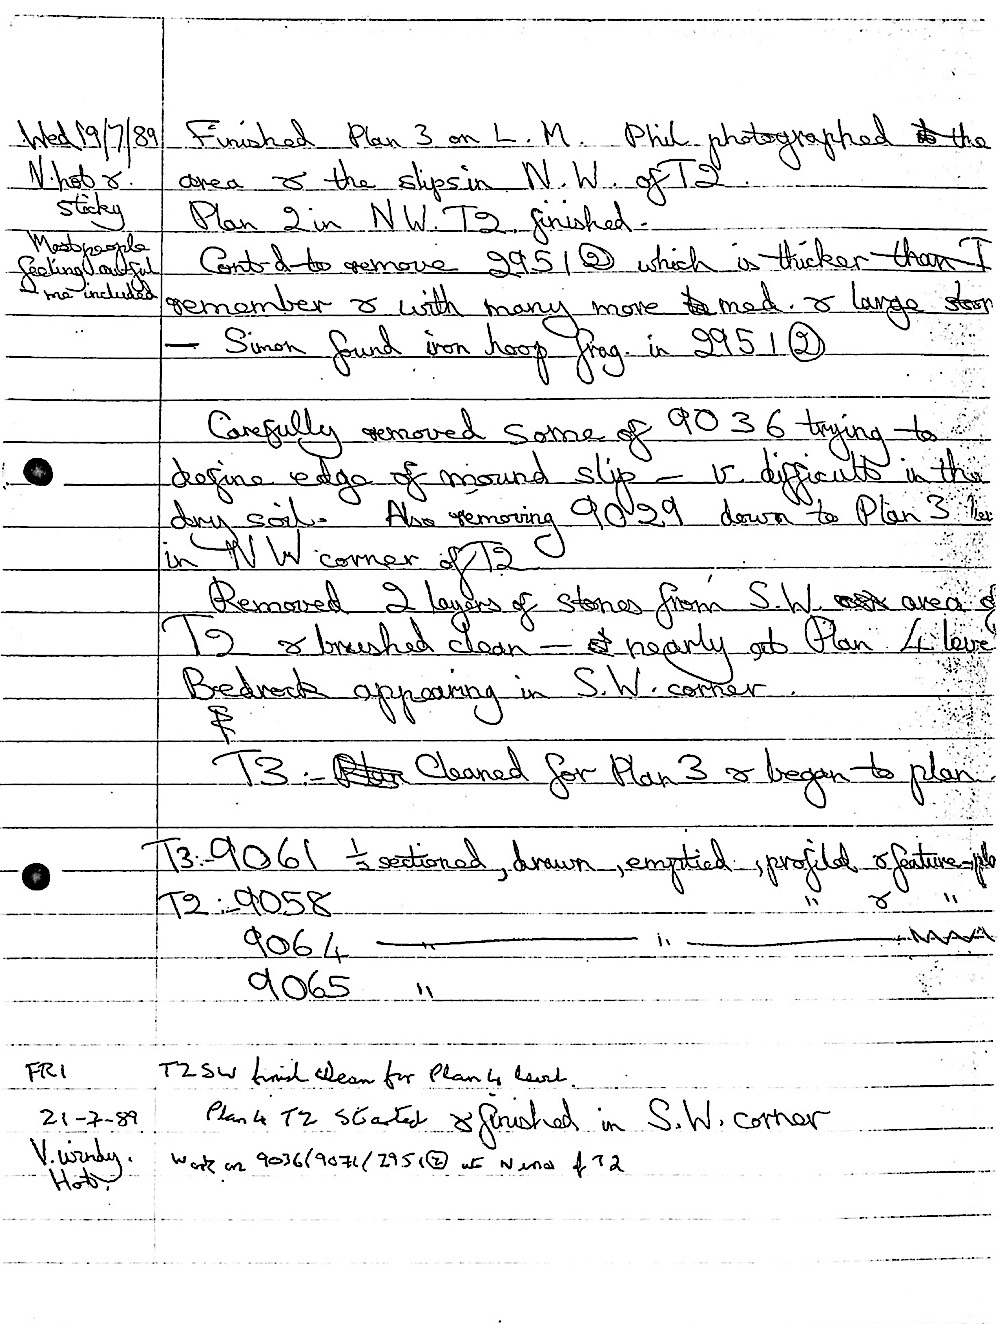 Wed 19/7/89 Finished Plan 3 on L.M. Phil photographed the
V. hot & area & the slips in N.W. of T2
sticky Plan 2 in NW. T2 finished.
Most people
feeling awful Contd to remove 2951② which is thicker than I
– me included remember & with many more med. & large
— Simon found iron hoop frag. in 2951②
Carefully removed some of 9036 trying to
define edge of mound slip – v. difficult in the
dry soil. Also removing 9029 down to Plan 3
in NW corner of T2
Removed 2 layers of stones from S.W. area of
T2 & brushed clean – nearly at Plan 4 level
Bedrock appearing in S.W. corner.
T3:- Cleaned for Plan 3 & began to plan
T3:- 9061 ½ sectioned, drawn, emptied, profiled & feature-pla
T2:- 9058 " & "
9064 — " — " —
9065 "
FRI T2 SW final clean for Plan 4 level.
21-7-89 Plan 4 T2 started & finished in S.W. corner
V. windy. Work on 9036/9071/2951② at N end of T2
Hot.